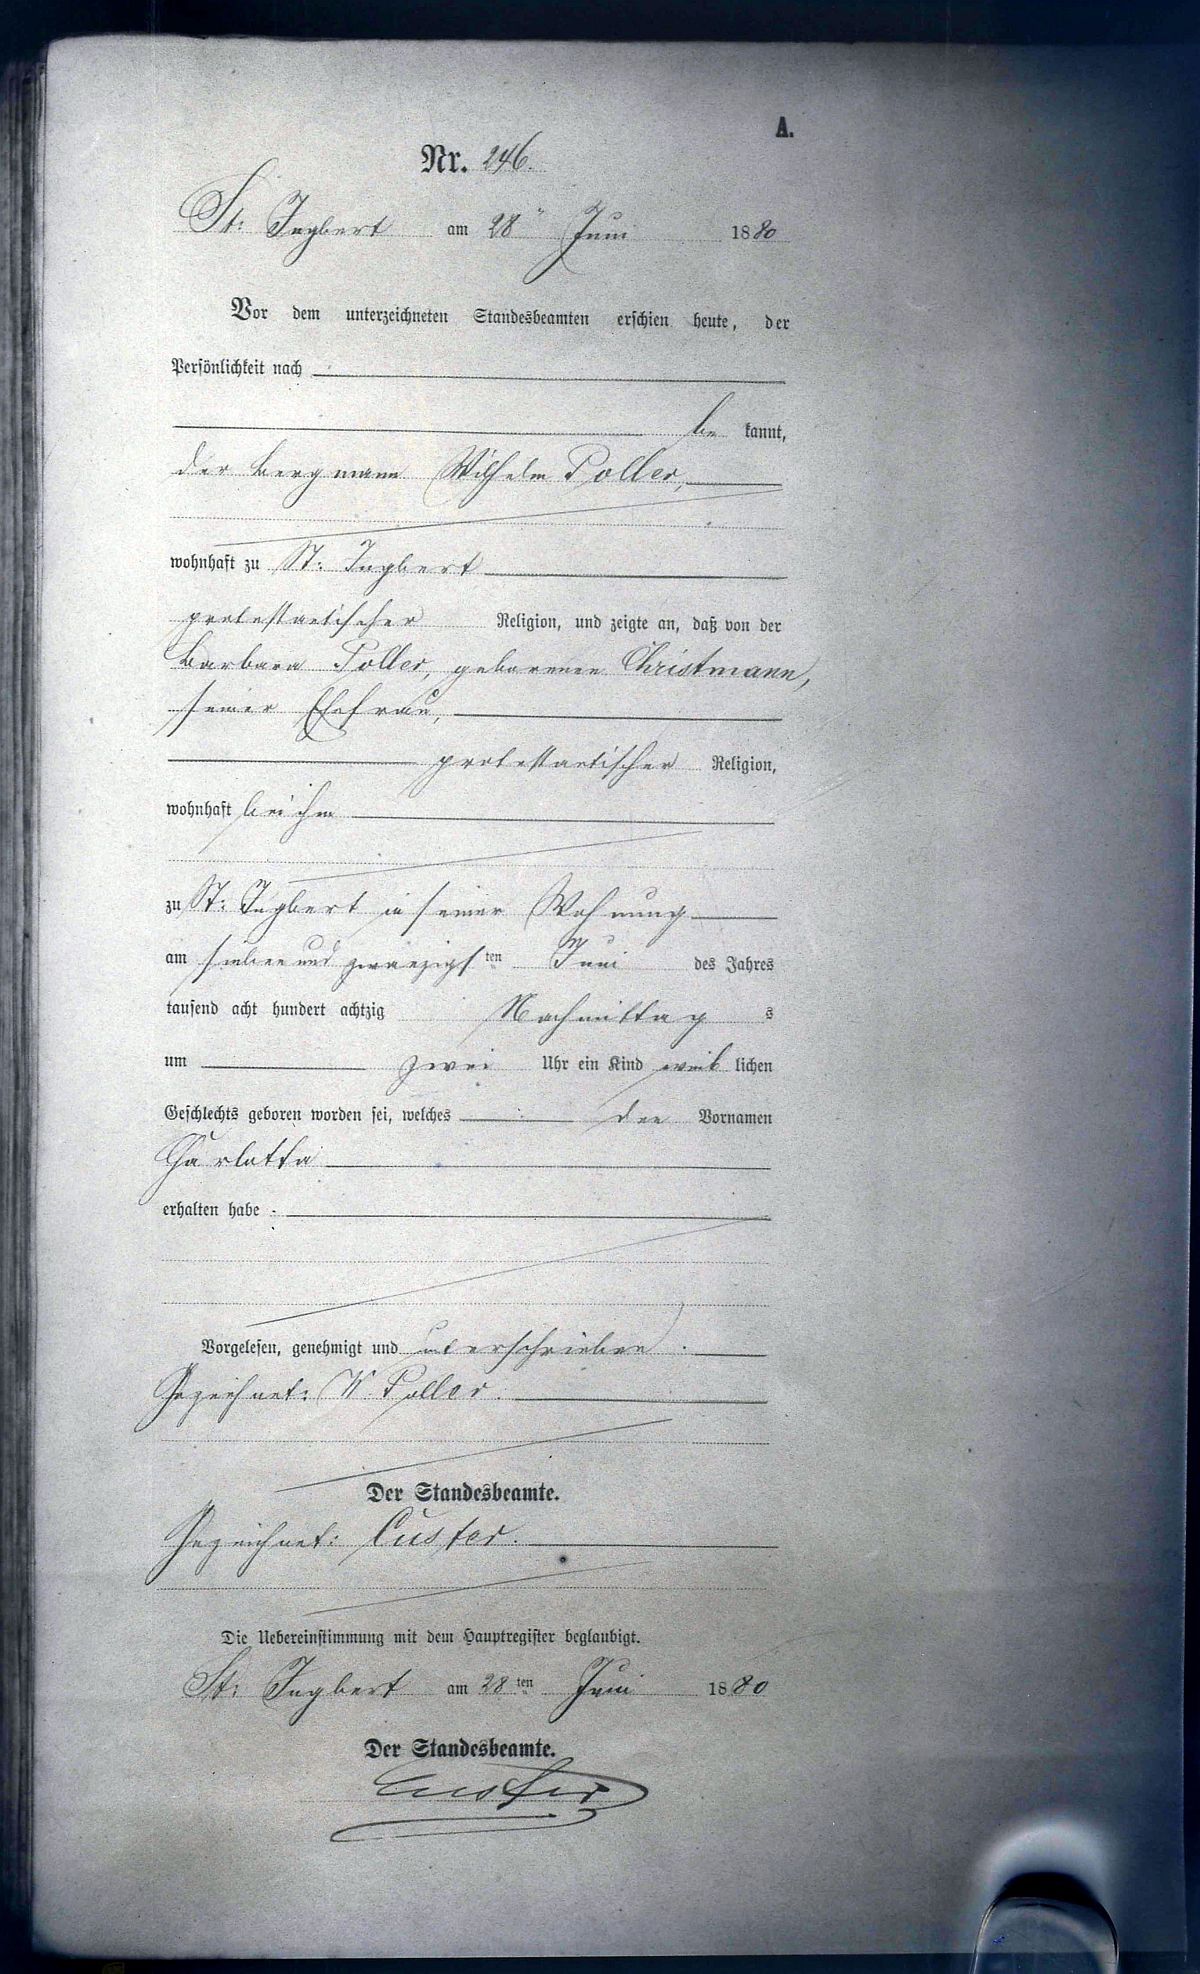 A.
Nr. 246.
St. Ingbert am 28" Juni 1880
Vor dem unterzeichneten Standesbeamten erschien heute, der
Persönlichkeit nach
be kannt,
der Bergmann Wilhelm Poller,
wohnhaft zu St. Ingbert
protestantischer Religion, und zeigte an, daß von der
Barbara Poller, geborenen Christmann,
seiner Ehefrau,
protestantischer Religion,
wohnhaft bei ihm
zu St. Ingbert in seiner Wohnung
am sieben und zwanzigsten Juni des Jahres
tausend acht hundert achtzig Nachmittag s
um zwei Uhr ein Kind weib lichen
Geschlechts geboren worden sei, welches den Vornamen
Charlotta
erhalten habe.
Vorgelesen, genehmigt und unterschrieben.
Gezeichnet: W Poller.
Der Standesbeamte.
Gezeichnet: Custer.
Die Uebereinstimmung mit dem Hauptregister beglaubigt.
St. Ingbert am 28ten Juni 1880
Der Standesbeamte.
Custer